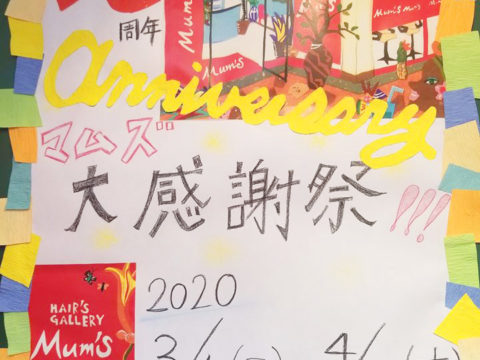 周年
Mum's
Mum's
Mum's
Anniversary
マムズ
大感謝祭!!!
2020
HAIR'S
GALLERY
Mum's
3/
4/